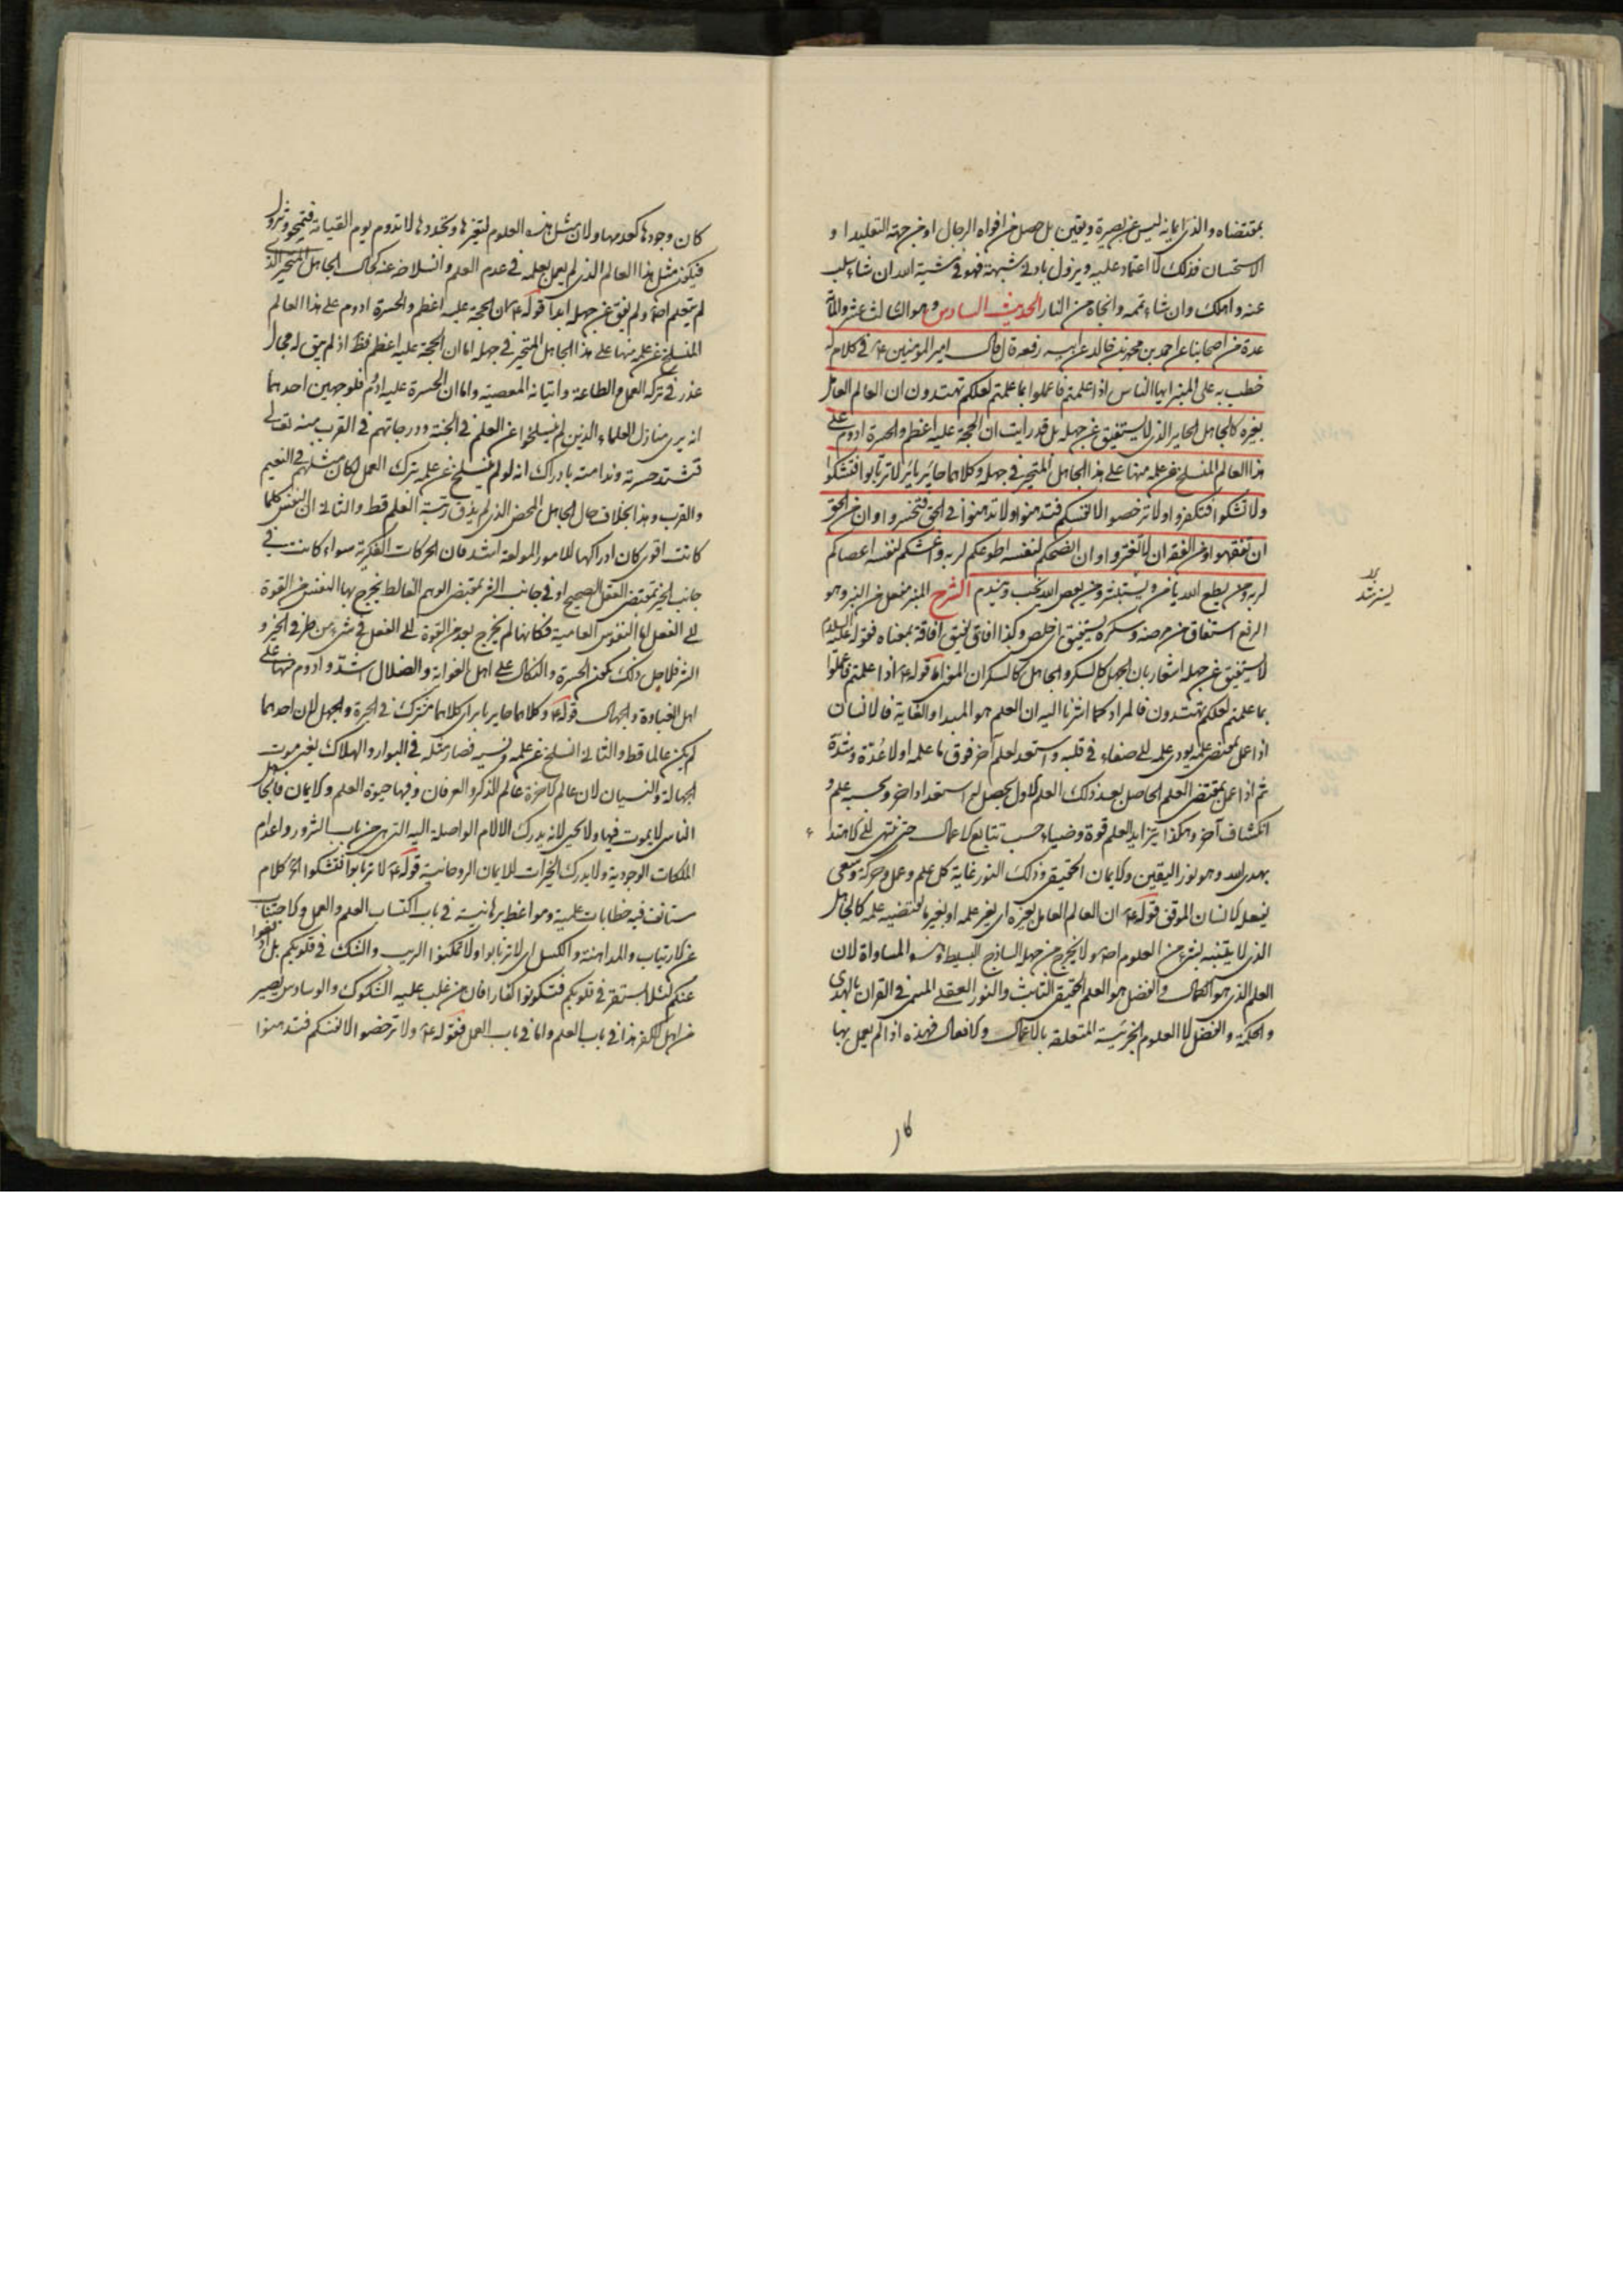 بمقتضاه والذى ايمانه ليس عن بصيرة ويقين بل حصل من افواه الرجال او من جهة التقليد او
الاستحسان فذلك لا اعتماد عليه ويزول بادنى شبهة فهو فى مشية الله ان شاء سلب
عنه واهلكه وان شاء تممه وانجاه من النار الحديث السادس وهو الثالث عشر والمأة
عدة من اصحابنا عن احمد بن محمد بن خالد عن ابيه رفعه قال قال امير المؤمنين ع فى كلام له
خطب به على المنبر ايها الناس اذا علمتم فاعملوا بما علمتم لعلكم تهتدون ان العالم العامل
بغيره كالجاهل الحاير الذى لا يستفيق عن جهله بل قد رايت ان الحجة عليه اعظم والحسرة ادوم على
هذا العالم المنسلخ عن علمه منها على هذا الجاهل المتحير فى جهله وكلاهما حائر بائر لا ترتابوا فتشكوا
ولا تشكوا فتكفروا ولا ترخصوا لانفسكم فتدهنوا ولا تدهنوا فى الحق فتخسروا وان من الحق
ان تفقهوا ومن الفقه ان لا تغتروا وان انصحكم لنفسه اطوعكم لربه واغشكم لنفسه اعصاكم
لربه ومن يطع الله يأمن ويستبشر ومن يعص الله يخب ويندم الشرح المنبر مفعل من النبر وهو
الرفع استفاق من مرضه وسكره يستفيق اى خلص وكذا افاق يفيق افاقة بمعناه فقوله عليه السلام
لا يستفيق عن جهله اشعار بان الجهل كالسكر والجاهل كالسكران قوله ع اذا علمتم فاعملوا
بما علمتم لعلكم تهتدون فالمراد كما اشرنا اليه ان العلم هو المبدا والغاية فالانسان
اذا عمل بمقتضى علمه يودى علمه الى صفاء فى قلبه واستعد لعلم آخر فوق ما علمه اولا عدة وشدة
ثم اذا عمل بمقتضى العلم الحاصل بعد ذلك العلم الاول يحصل له استعداد اخر وبحسبه علم و
انكشاف آخر وهكذا يتزايد العلم قوة وضياء حسب تتابع الاعمال حتى ينتهى الى الاهتداء
بهدى الله وهو نور اليقين والايمان الحقيقى وذلك النور غاية كل علم وعمل وحركة وسعى
يفعله الانسان الموقن قوله ع ان العالم العامل بغيره اى بغير علمه او بغير ما يقتضيه علمه كالجاهل
الذى لا يتنبه بشئ من العلوم اصلا ولا يخرج من جهله الساذج البسيط المساواة لان
العلم الذى هو الكمال والفضل هو العلم الحقيقى الثابت والنور العقلى المسمى فى القران بالهدى
والحكمة والفضل لا العلوم الجزئية المتعلقة بالاعمال والافعال فهذه اذا لم يعمل بها
كان وجودها كعدمها ولان مثل هذه العلوم لتغيرها وتجددها لا تدوم يوم القيامة فتمحو وتزول
فيكون مثل هذا العالم الذى لم يعمل بعلمه فى عدم العلم وانسلاخه عنه كحال الجاهل المتحير الذى
لم يتعلم اصلا ولم يفق عن جهله ابدا قوله ع ان الحجة عليه اعظم والحسرة ادوم على هذا العالم
المنسلخ عن علمه منها على هذا الجاهل المتحير فى جهله اما ان الحجة عليه اعظم فظ اذ لم يبق له مجال
عذر فى تركه العمل والطاعة واتيانه المعصية واما ان الحسرة عليه ادوم فلوجهين احدهما
انه يرى منازل العلماء الذين لم ينسلخوا عن العلم فى الجنة ودرجاتهم فى القرب منه تعالى
فتشتد حسرته وندامته بادراك انه لو لم ينسلخ عن علمه بترك العمل لكان مثلهم فى النعيم
والقرب وهذا بخلاف حال الجاهل المحض الذى لم يذق رتبة العلم قط والثانى ان النفس كلما
كانت اقوى كان ادراكها للامور المولمة اشد فان الحركات الفكرية سواء كانت فى
جانب الخير بمقتضى العقل الصحيح او فى جانب الشر بمقتضى الوهم الغالط يخرج بها النفس من القوة
الى الفعل اما النفوس العامية فكانها لم يخرج بعد من القوة الى الفعل فى شئ من طرفى الخير و
الشر فلاجل ذلك يكون الحسرة والنكال على اهل الغواية والضلال اشد وادوم منها على
اهل الغباوة والجهال قوله ع وكلاهما حاير باير اى كلاهما مشترك فى الحيرة والجهل لان احدهما
لم يكن عالما قط والثانى انسلخ عن علمه ونسيه فصار مثله فى البوار والهلاك يعنى موت
الجهالة والنسيان لان عالم الاخرة عالم الذكر والعرفان وفيها حيوة العلم والايمان فالجاهل
الناسى لا يموت فيها ولا يحيى لانه يدرك الالام الواصلة اليه التى هى من باب الشرور واعدام
الملكات الوجودية ولا يدرك الخيرات للايمان الروحانية قوله ع لا ترتابوا فتشكوا الخ كلام
مستانف فيه خطابات علمية ومواعظ برهانية فى باب اكتساب العلم والعمل والاجتناب
عن الارتياب والمداهنة والكسل اى لا ترتابوا ولا تمكنوا الريب والشك فى قلوبكم بل ادفعوا
عنكم لئلا يستقر فى قلوبكم فتكونوا كفارا فان من غلب عليه الشكوك والوساوس يصير
من اهل الكفر هذا فى باب العلم واما فى باب العمل فقوله ع ولا ترخصوا لانفسكم فتدهنوا